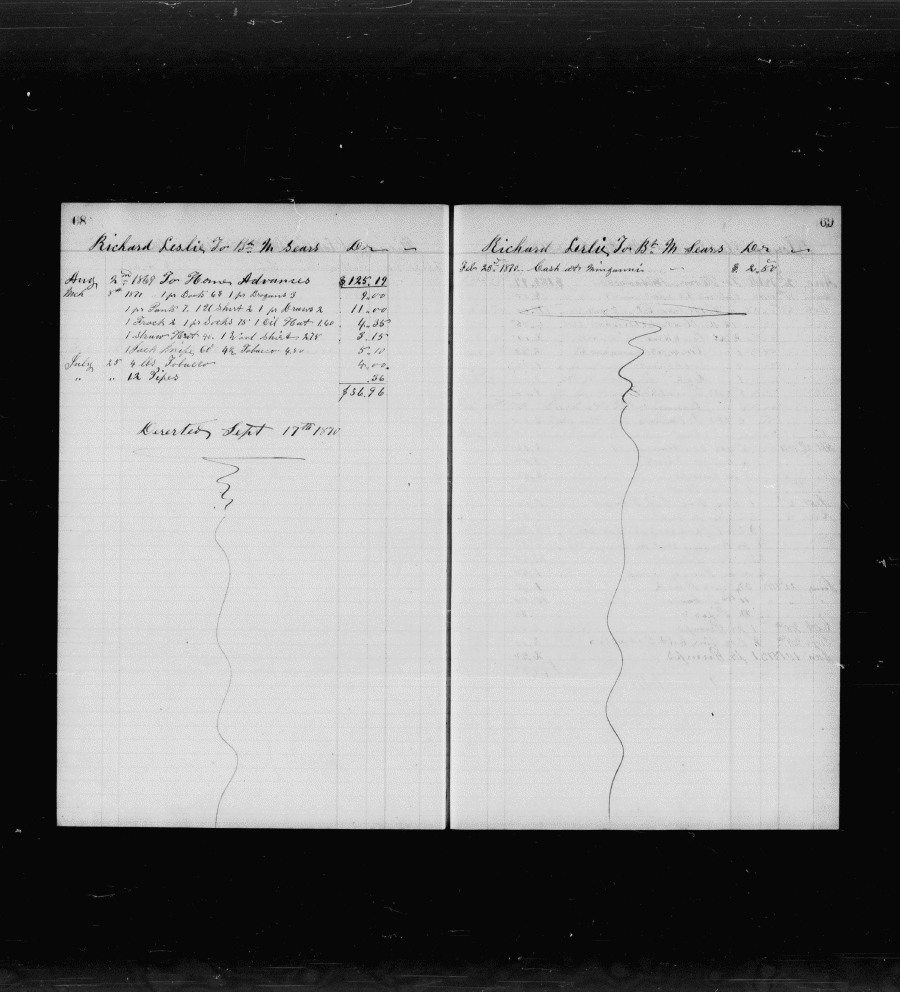 68
Richard Leslie To Bk M Sears Dr
Aug 2nd 1869 To Home Advances $125.19
Mch 8th 1870 1 pr Boots 6$ 1 pr Brogans 3 9.00
1 pr Pants 7. 1 U Shirt 2 1 pr Draws 2 11.00
1 Frock 2 1 pr Socks 75 1 Oil Hat 1.60 4.35
1 Straw Hat 40 1 Wool Shirt 275 3.15
1 Sheath Knife 60 Tobacco 4.50 5.10
July 25 4 lbs Tobacco 4.00
" " 12 Pipes .36
$36.96
Deserted Sept 17th 1870
69
Richard Leslie To Bk M Sears Dr
Feb 25th 1870 Cash at $ 2.50